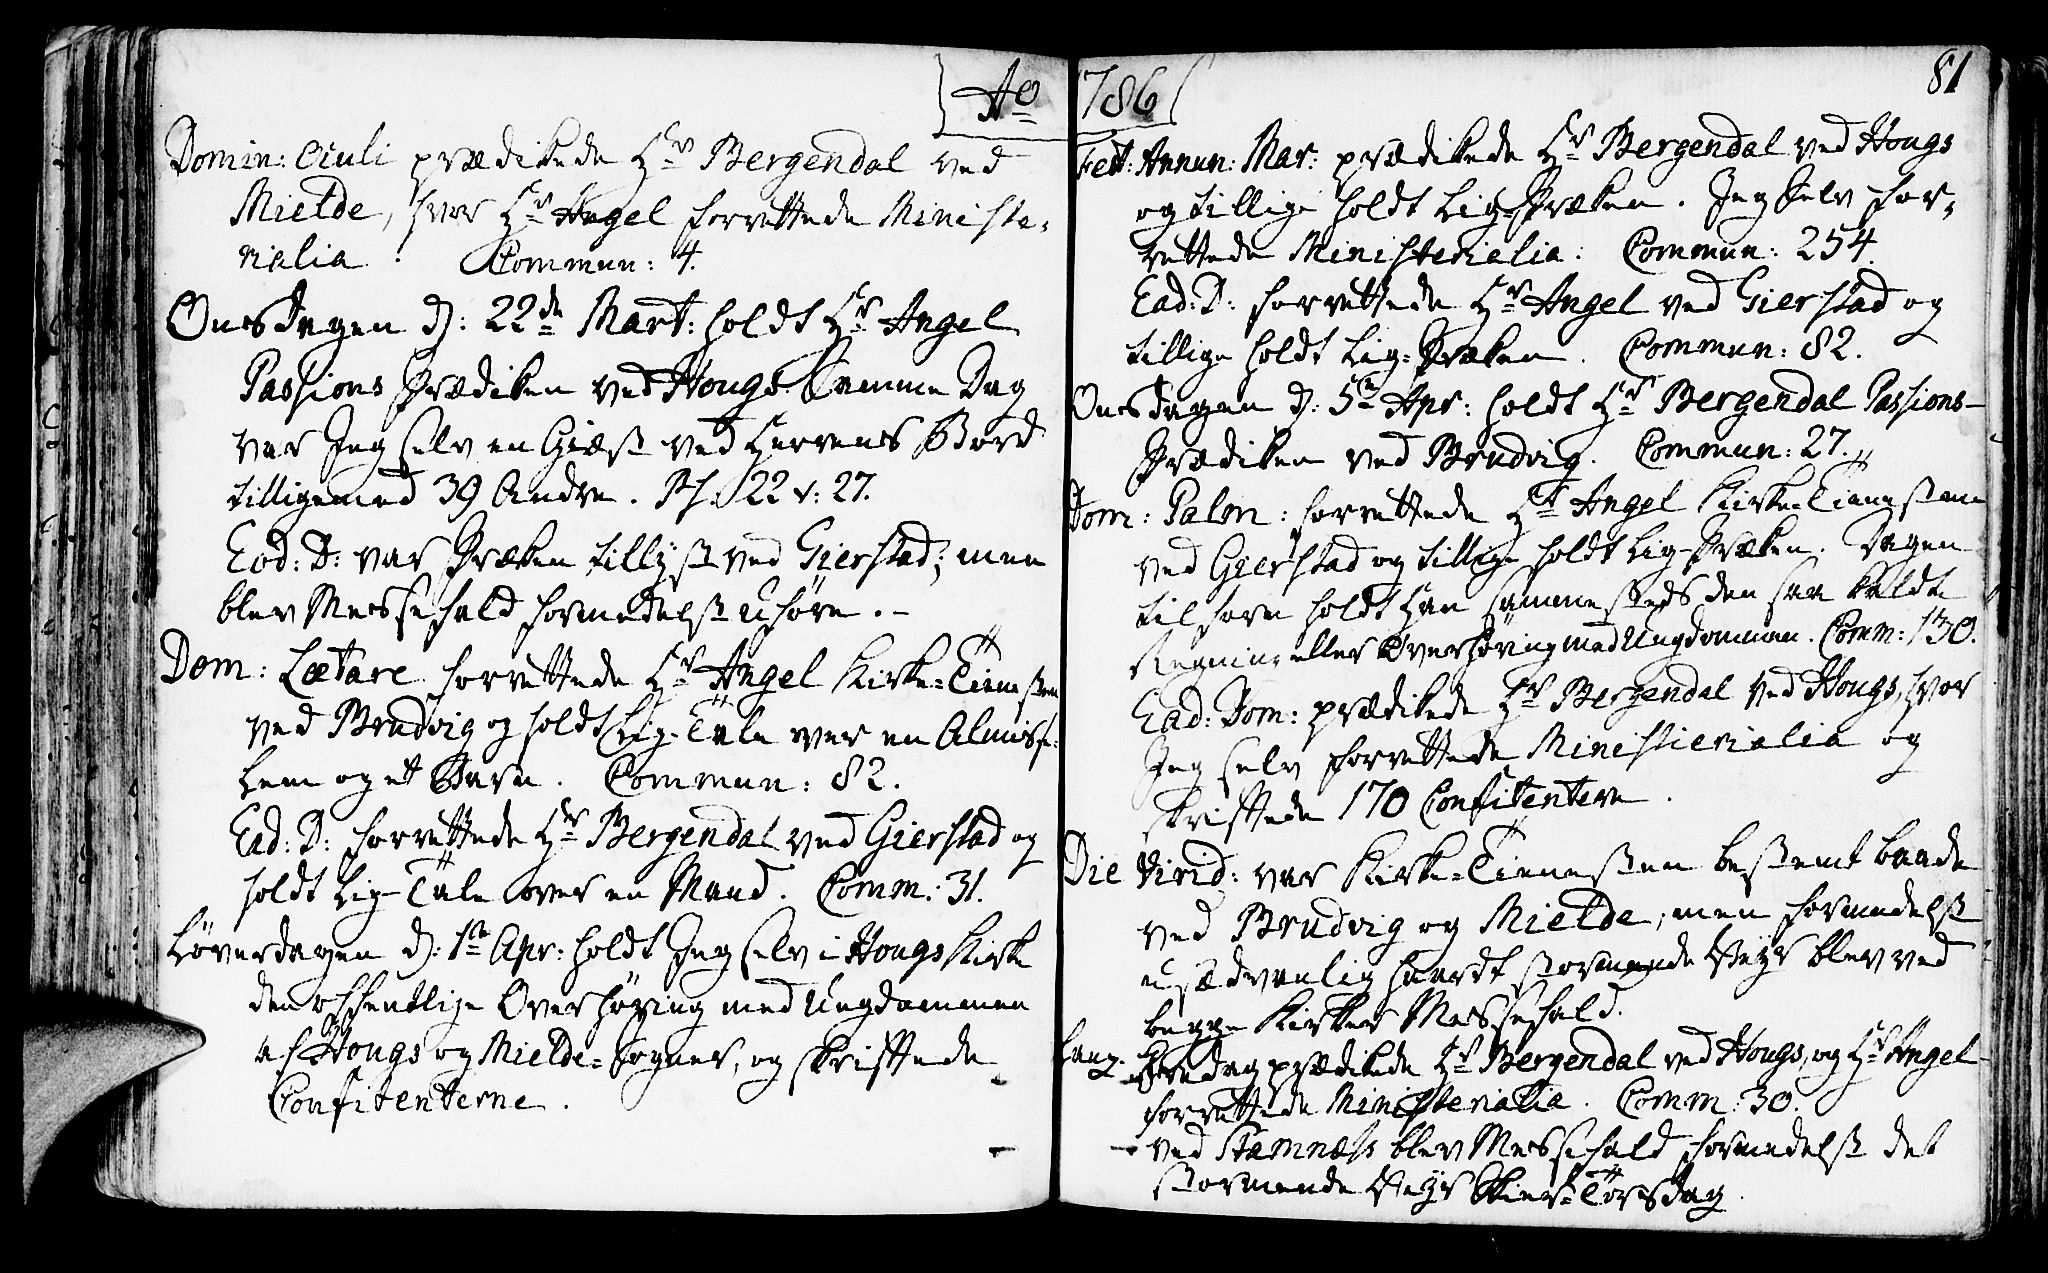 Ao 1786
81
Domin: Oculi prædikede Hr Bergendal ved
Mielde, hvor Hr Angel forrettede Ministe-
rialia. Commun: 4.
Onsdagen d: 22de Mart: holdt Hr Angel
Passions Prædiken ved Hougs. Samme Dag
var Jeg selv en Giæst ved Herrens Bord
tilligemed 39 Andre. Ps. 22 v: 27.
Eod: D: var Præken tillyst ved Gierstad; men
blev Messefald formedelst Uføre.
Dom: Lætare forrettede Hr Angel Kirke-Tienesten
ved Brudvig og holdt Lig-Tale over en Almisse-
lem og et Barn. Commun: 82.
Ead: D: forrettede Hr Bergendal ved Gierstad og
holdt Lig-Tale over en Mand. Comm: 31.
Løverdagen d: 1te Apr: holdt Jeg selv i Hougs Kirke
den offentlige Overhøring med Ungdommen
af Hougs og Mielde-Sogner, og skriftede
Confitenterne.
Fest: Annun: Mar: prædikede Hr Bergendal ved Hougs
og tillige holdt Lig-Præken. Jeg selv for-
rettede Ministerialia: Commun: 254.
Ead: D: forrettede Hr Angel ved Gierstad og
tillige holdt Lig-Præken. Commun: 82.
Onsdagen d: 5te Apr: holdt Hr Bergendal Passions-
Prædiken ved Brudvig. Commun: 27.
Dom: Palm: forrettede Hr Angel Kirke-Tienesten
ved Gierstad og tillige holdt Lig-Præken. Dagen
tilforn holdt han sammesteds den saa kaldte
Stegning eller Overhøring med Ungdommen. Comm: 130.
Ead: Dom: prædikede Hr Bergendal ved Hougs, hvor
Jeg selv forrettede Ministerialia og
skriftede 170 Confitentere.
Die Virid: var Kirke-Tienesten bestemt baade
ved Brudvig og Mielde, men formedelst
usædvanlig haardt stormende Veyr blev ved
begge Kirker Messefald.
Lang-Fredag prædikede Hr Bergendal ved Hougs, og Hr Angel
forrettede Ministerialia. Comm: 30.
ved Stamnæs blev Messefald formedelst det
stormende Veyr Skier-Torsdag.